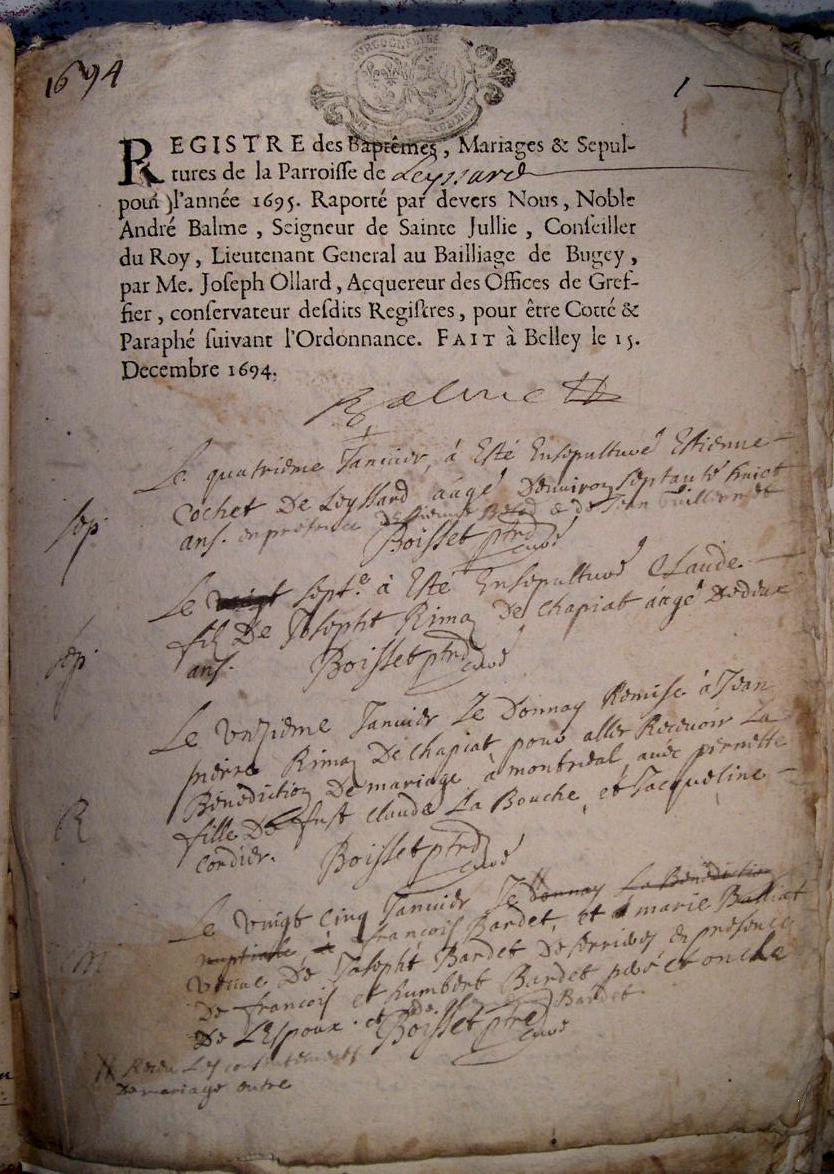 1694
1
REGISTRE des Baptêmes, Mariages & Sepul-
tures de la Parroisse de Leyssard
pour l'année 1695. Raporté par devers Nous, Noble
André Balme, Seigneur de Sainte Jullie, Conseiller
du Roy, Lieutenant General au Bailliage de Bugey,
par Me. Joseph Ollard, Acquereur des Offices de Gref-
fier, conservateur desdits Registres, pour être Cotté &
Paraphé suivant l'Ordonnance. FAIT à Belley le 15.
Decembre 1694.
Balme
Le quatrieme Janvier, à Esté Ensepulturé Estienne
sep.
Cochet De Leyssard aagé Denviron septante huict
ans. en presence de Estienne & de Jean Guillermet
Boisset ptre curé
Le sept.e à Esté Ensepulturé Claude
sep.
fil De Josepht Rimoz De chapiat aagé De deux
ans. Boisset ptre curé
Le unzieme Janvier Je Donnay Remise à Jean
pierre Rimoz De chapiat pour aller Recevoir La
Benediction De mariage à montreal avec pernette
R
fille De fust Claude La Bouche, et Jacqueline
Cordier. Boisset ptre curé
Le vingt cinq Janvier Je Donnay La Benediction
nuptiale, à francois Bardet, et marie Balliat
m
veuve De Josepht Bardet De serrieres En presence
De francois et humbert Bardet pere et oncle
De L'Espoux. et de Bardet
Boisset ptre curé
Receu Les consentements
De mariage entre